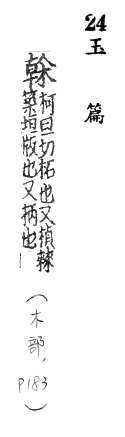 24玉篇
榦
柯旦切柘也又楨榦
築垣版也又柄也
(木部, P183)